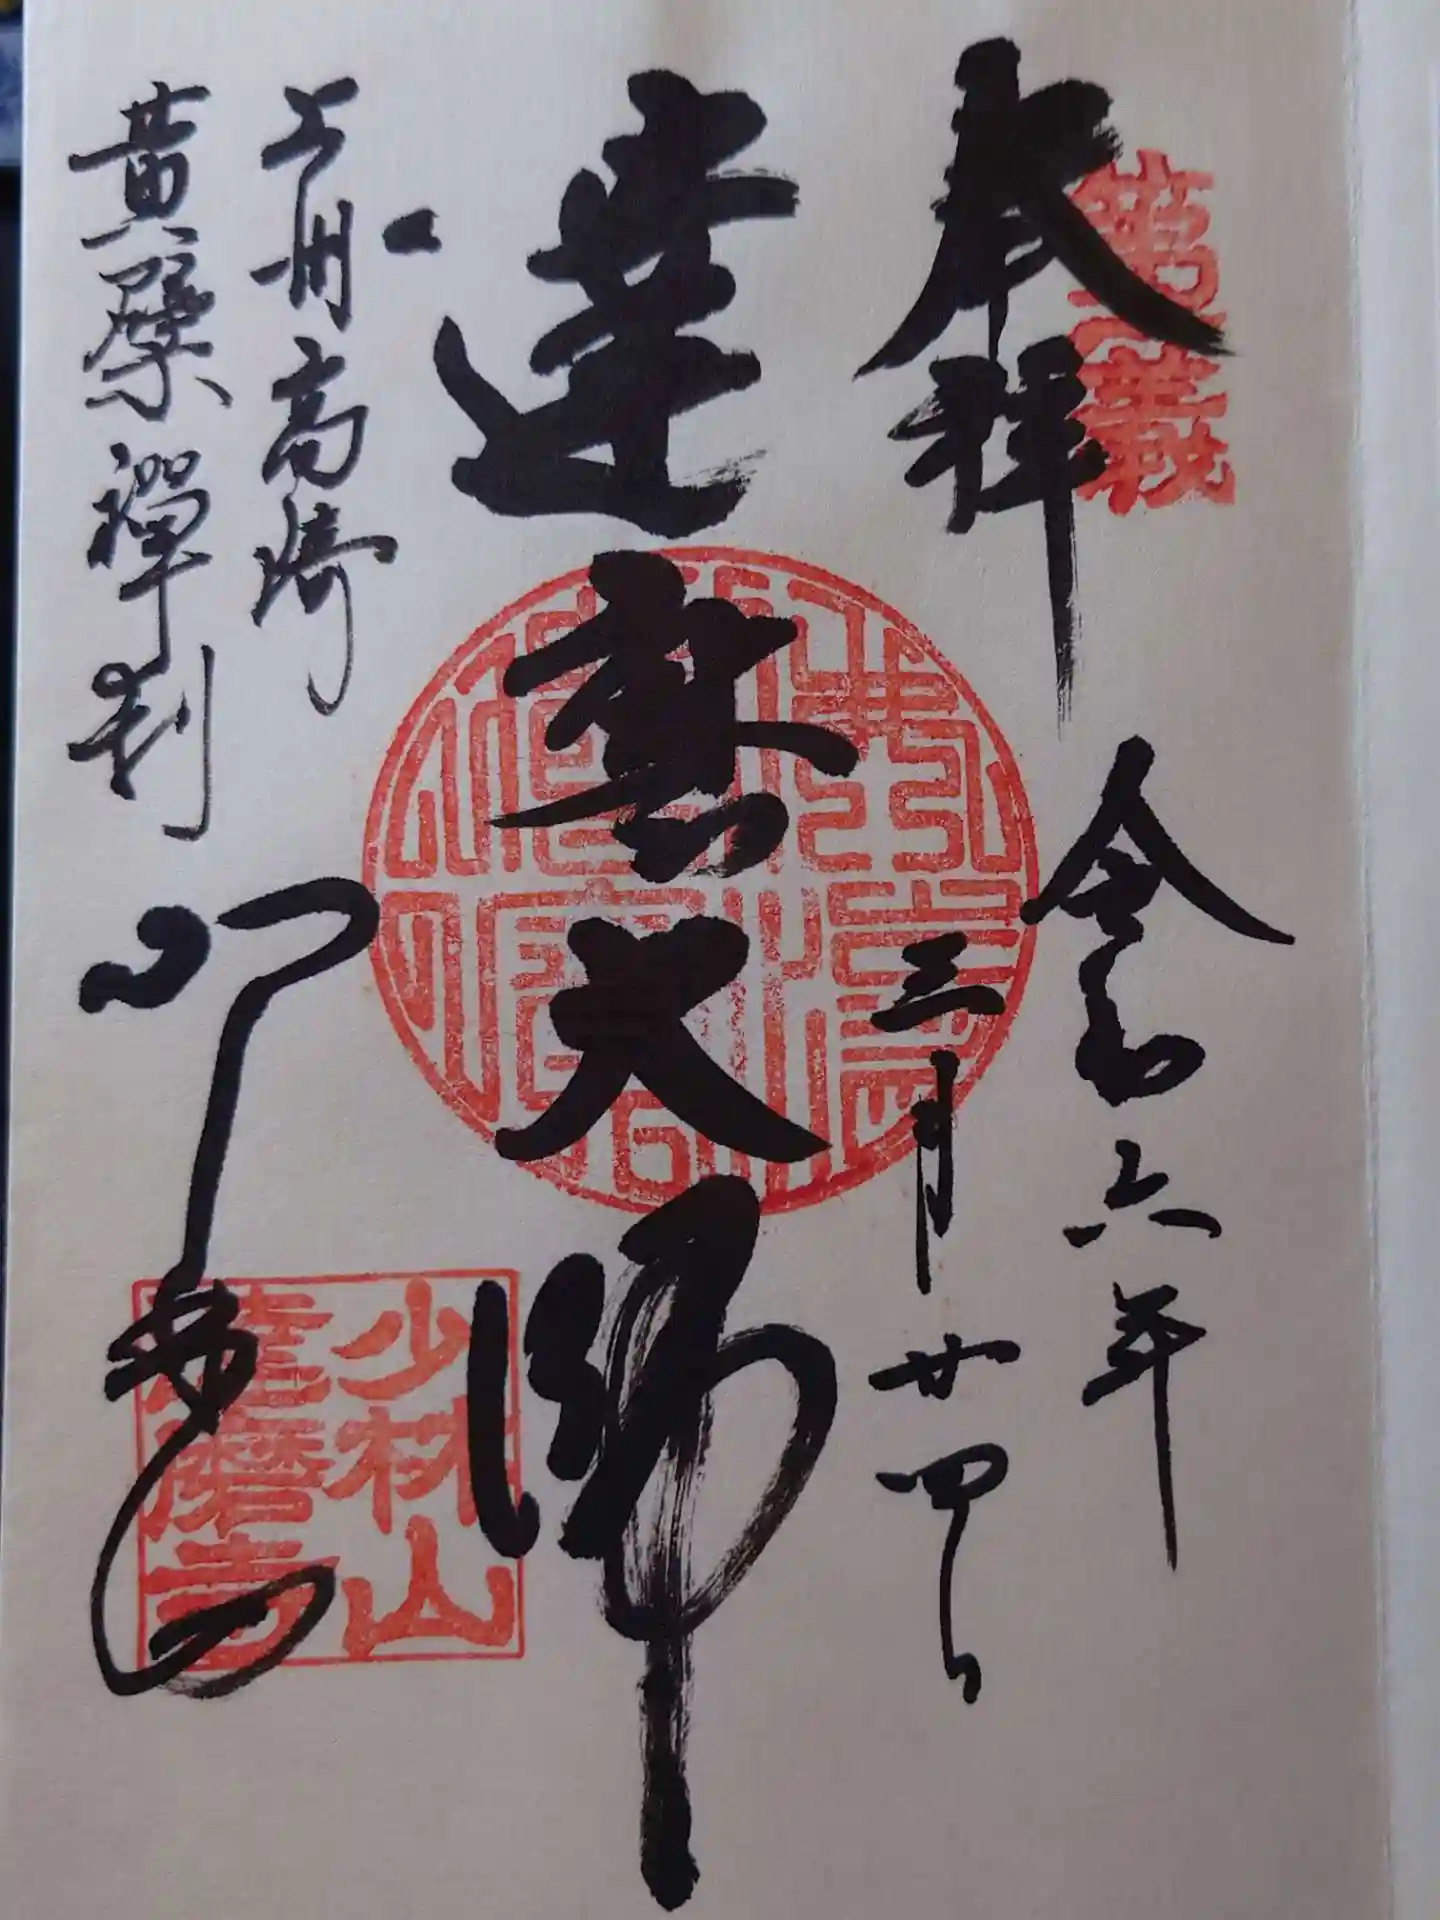 奉拝
第一義
令和六年
三月廿四日
達磨大師
上州高崎
黄檗禅刹
少林山
達磨寺